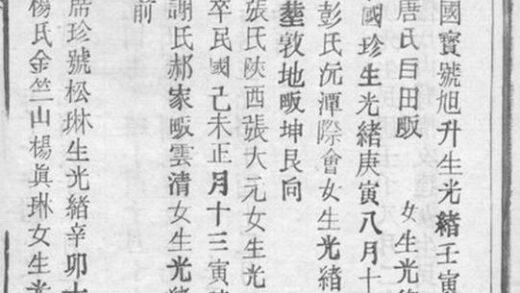 國寶號旭升生光緒壬寅
唐氏自田畈 女生光緒
國珍生光緒庚寅八月十
彭氏沅潭際會女生光緒
塟敦地畈坤艮向
張氏陝西張大元女生光
卒民國己未正月十三寅
謝氏郝家畈雲清女生光緒
前
席珍號松琳生光緒辛卯十
楊氏金竺山楊眞琳女生光